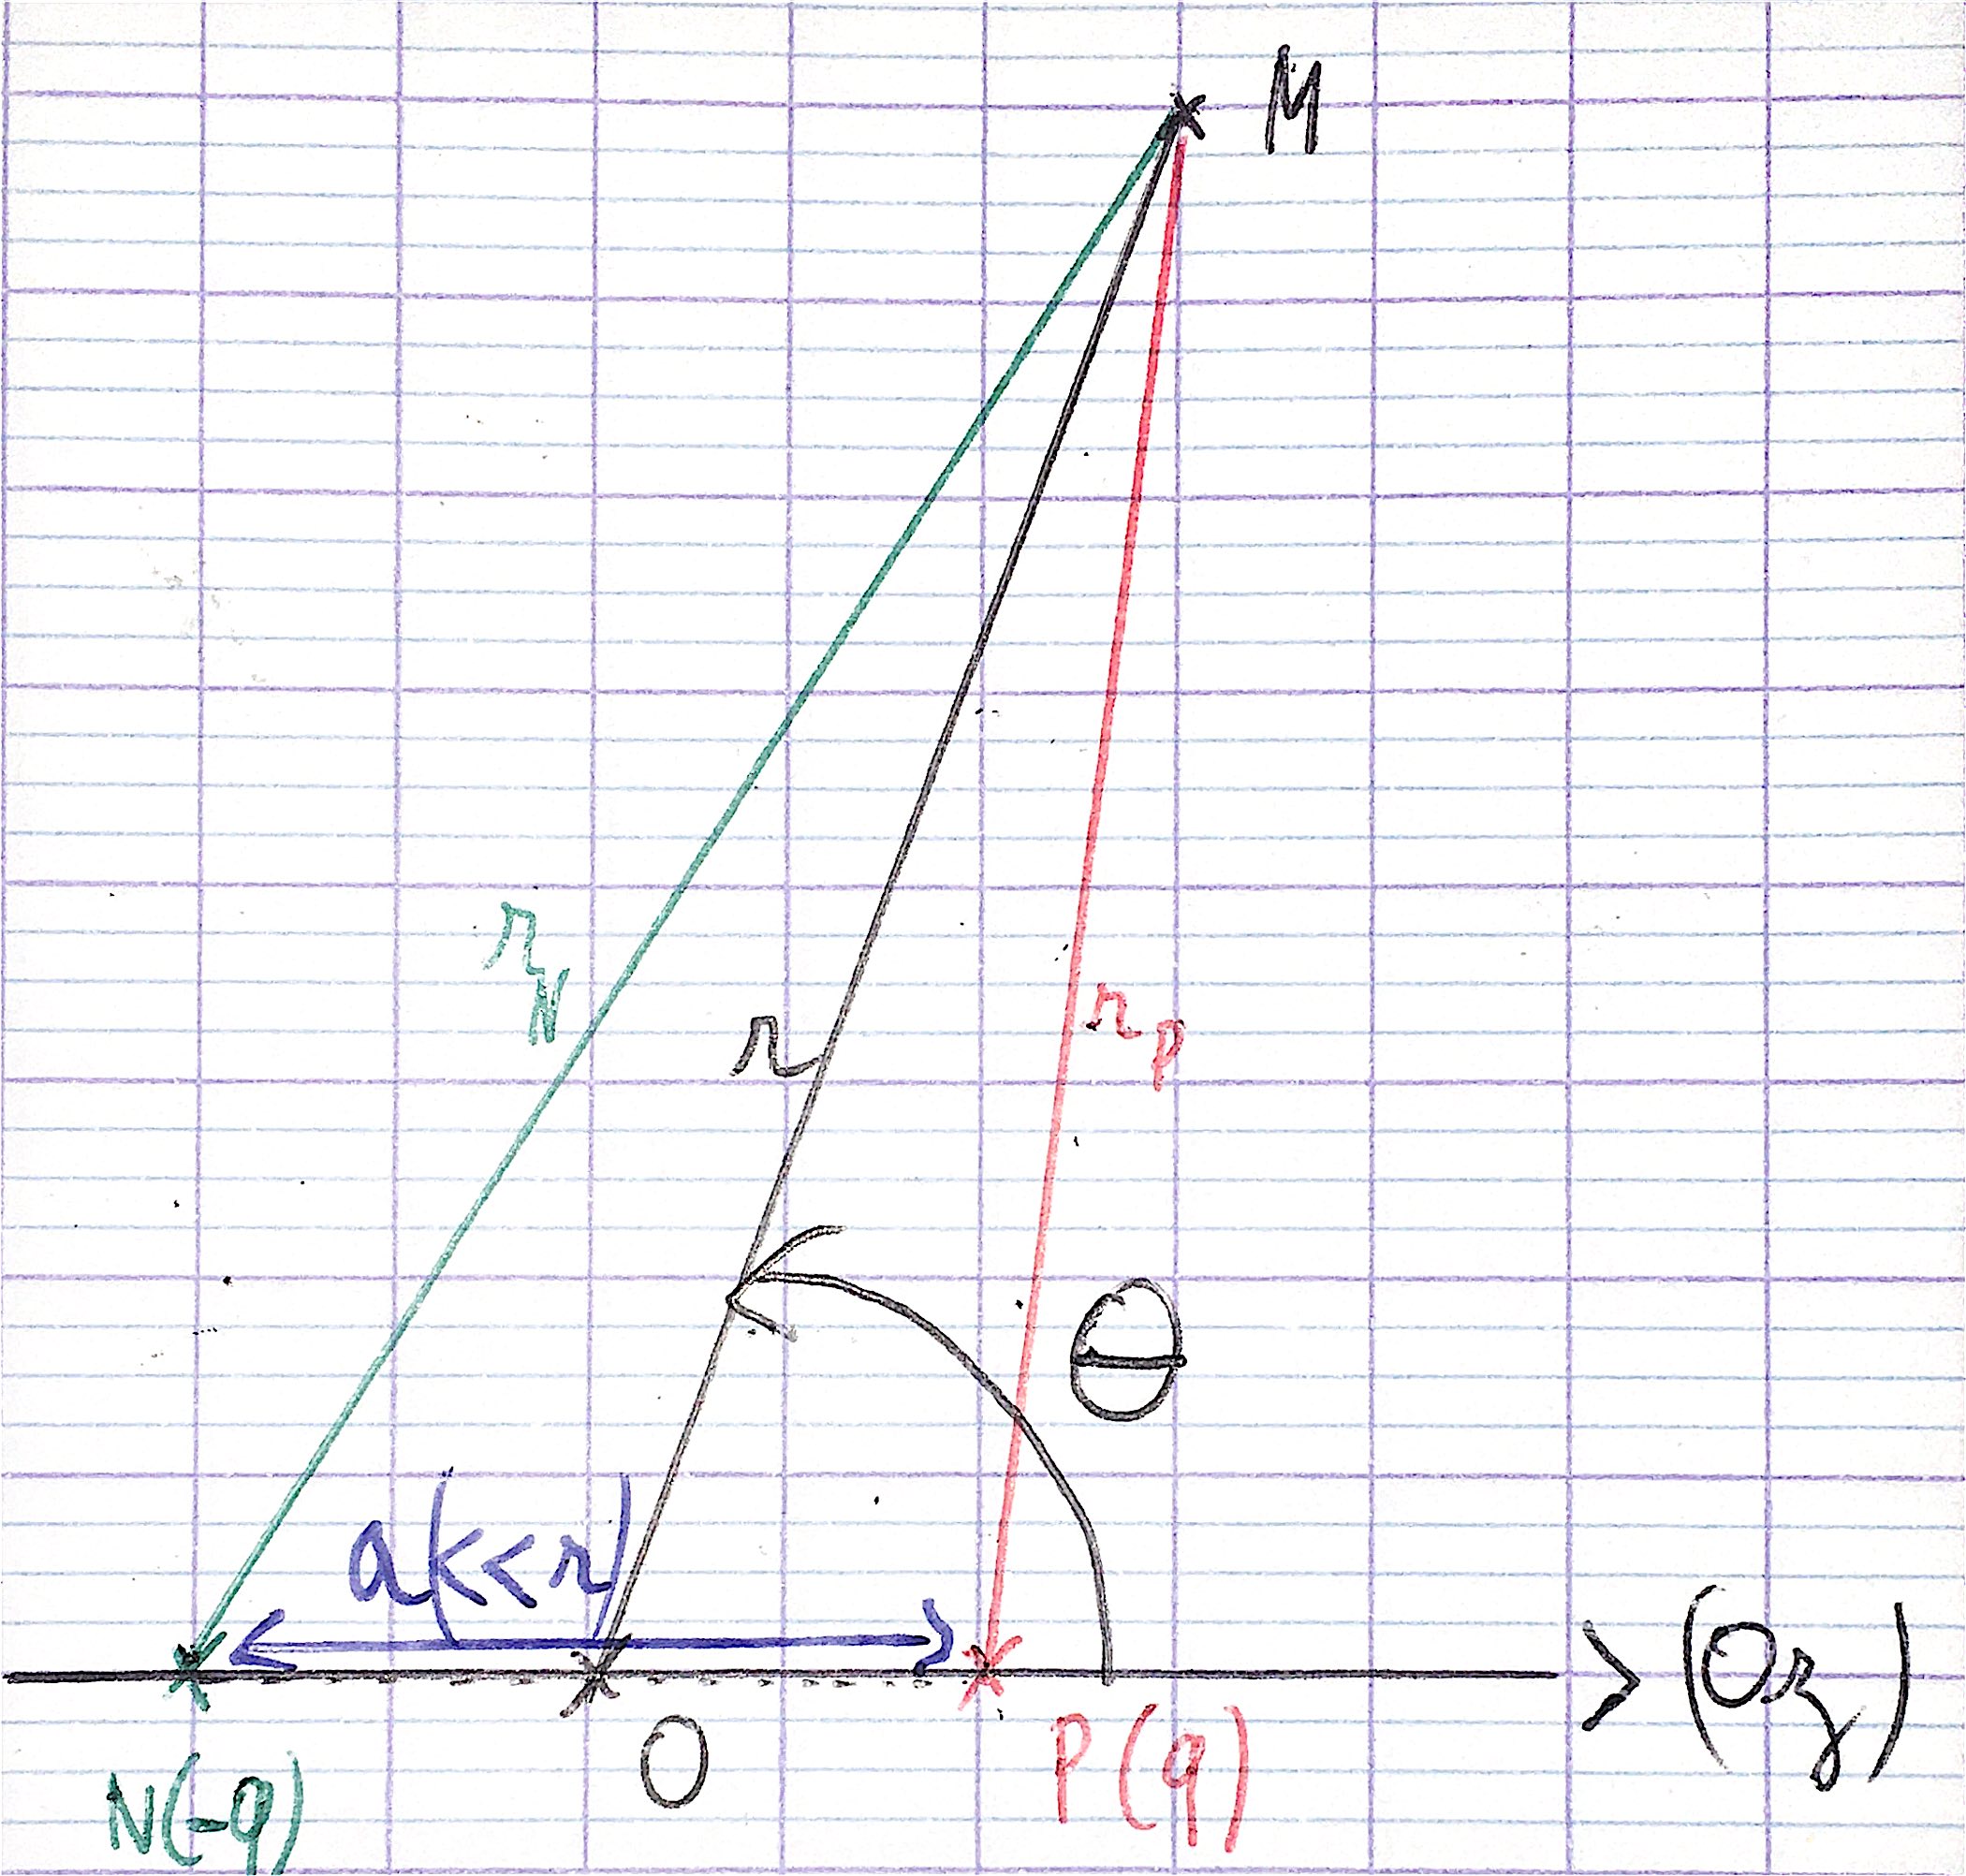 M
r_N
r
r_P
θ
a(<<r)
(Oz)
N(-q)
O
P(q)